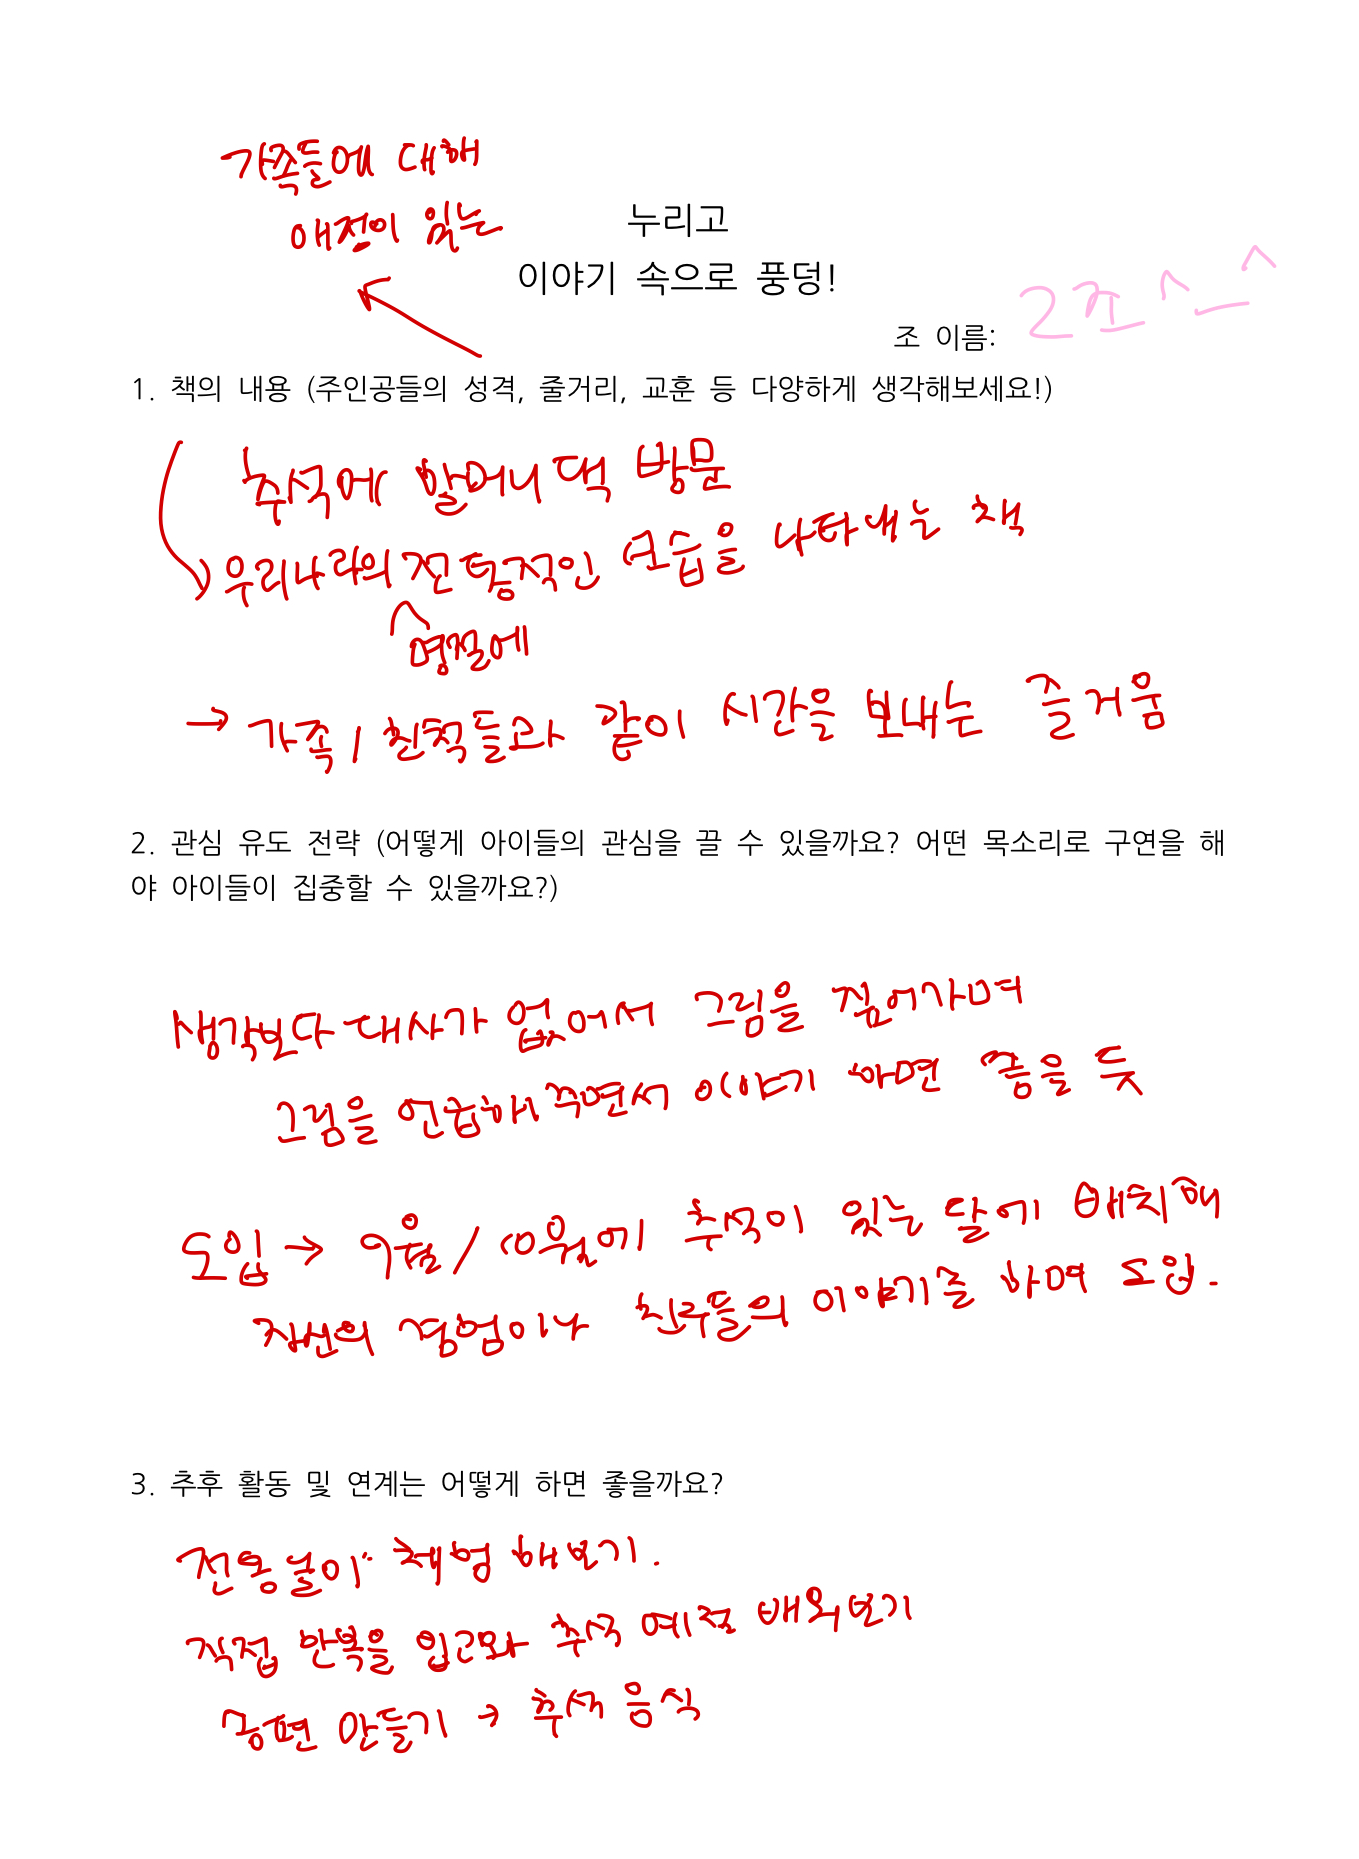 가족들에 대해
애정이 있는
누리고
이야기 속으로 풍덩!
조 이름: 2조 ^_^
1. 책의 내용 (주인공들의 성격, 줄거리, 교훈 등 다양하게 생각해보세요!)
추석에 할머니댁 방문
우리나라의 전통적인 모습을 나타내는 책
명절에
→ 가족 / 친척들과 같이 시간을 보내는 즐거움
2. 관심 유도 전략 (어떻게 아이들의 관심을 끌 수 있을까요? 어떤 목소리로 구연을 해
야 아이들이 집중할 수 있을까요?)
생각보다 대사가 없어서 그림을 짚어가며
그림을 언급해주면서 이야기 하면 좋을 듯
도입 → 9월 / 10월에 추석이 있는 달에 배치해
자신의 경험이나 친구들의 이야기를 하며 도입.
3. 추후 활동 및 연계는 어떻게 하면 좋을까요?
전통놀이 체험 해보기.
직접 한복을 입고와 추석 예절 배워보기
송편 만들기 → 추석 음식